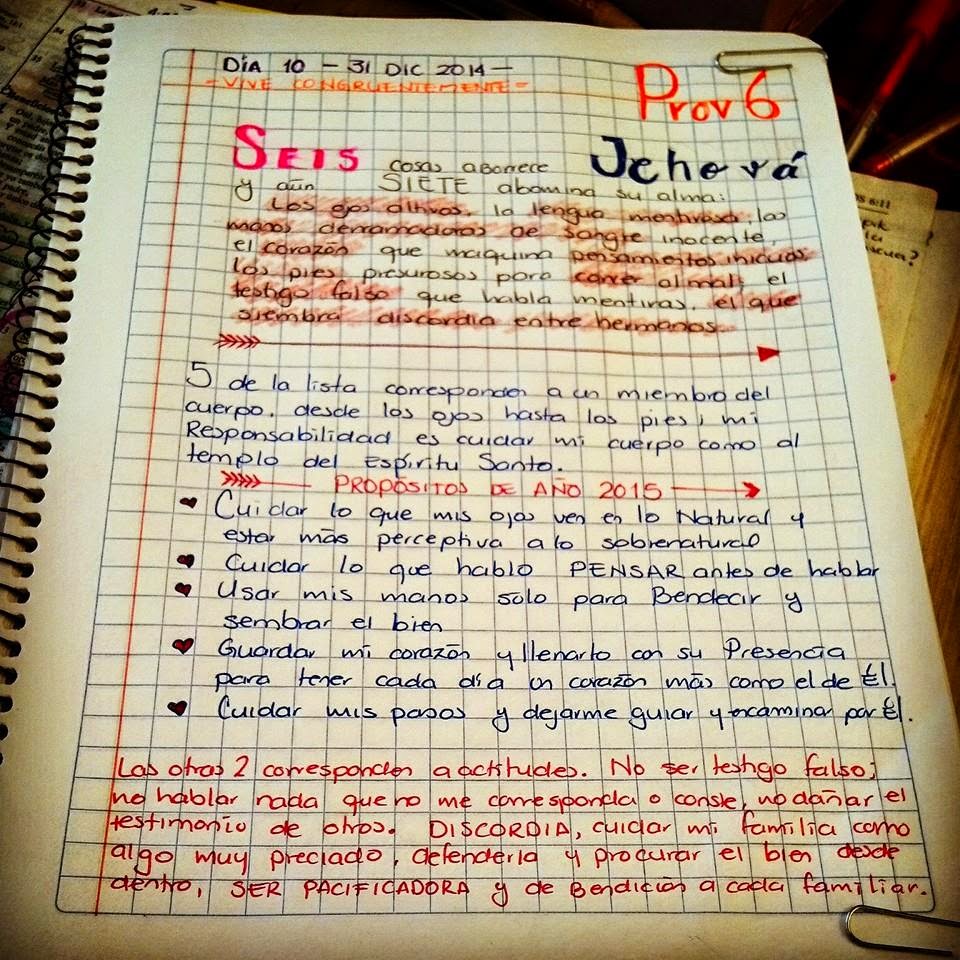 DÍA 10 - 31 DIC 2014 -
- VIVE CONGRUENTEMENTE -
Prov 6
SEIS cosas aborrece Jehová
y aún SIETE abomina su alma:
Los ojos altivos, la lengua mentirosa las
manos derramadoras de sangre inocente,
el corazón que maquina pensamientos inicuos
los pies presurosos para correr al mal, el
testigo falso que habla mentiras, el que
siembra discordia entre hermanos.
5 de la lista corresponden a un miembro del
cuerpo. desde los ojos hasta los pies, mi
Responsabilidad es cuidar mi cuerpo como al
templo del Espíritu Santo.
PROPÓSITOS DE AÑO 2015
Cuidar lo que mis ojos ven en lo Natural y
estar más perceptiva a lo sobrenatural
Cuidar lo que hablo PENSAR antes de hablar
Usar mis manos solo para Bendecir y
sembrar el bien
Guardar mi corazón y llenarlo con su Presencia
para tener cada día un corazón más como el de Él.
Cuidar mis pasos y dejarme guiar y encaminar por Él.
Las otras 2 corresponden a actitudes. No ser testigo falso;
no hablar nada que no me corresponda o conste, no dañar el
testimonio de otros. DISCORDIA, cuidar mi familia como
algo muy preciado, defenderla y procurar el bien desde
dentro, SER PACIFICADORA y de Bendición a cada familiar.